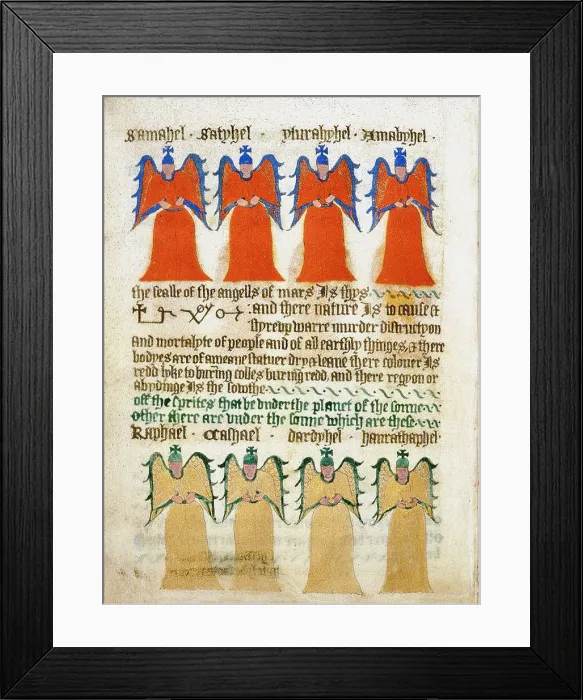 Samahel · Satyhel · yturahyhel · Amabyhel ·
the sealle of the angells of mars Is thys
: and there nature Is to cause &
styreup warre murder distructyon
and mortalyte of people and of all earthly thinges, & there
bodyes are of a meane statuer dry & leane there colouer Is
redd lyke to burning colles burnig redd, and there regyon or
abydinge Is the sowthe
off the sprites that be vnder the planet of the sonne
other there are vnder the sonne which are these
Raphael · Cashael · dardyhel · hanrathaphel